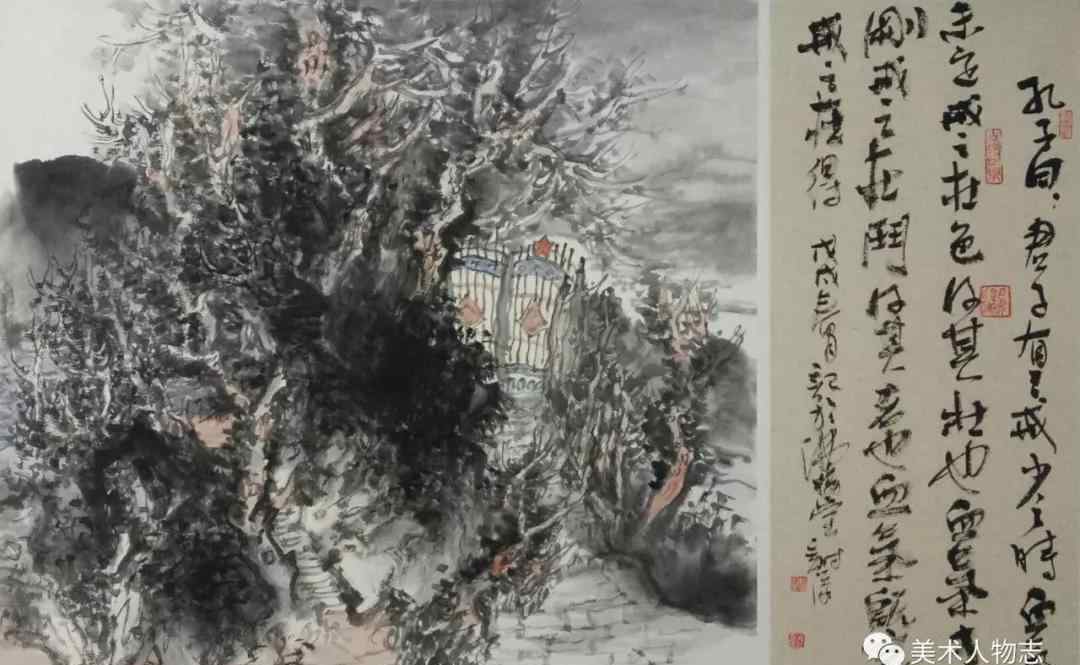 孔子曰君子有三戒少之時血
未定戒之在色及其壯也血氣方
剛戒之在鬥及其老也血氣既
戒之在得 戊戌 記於
美术人物志